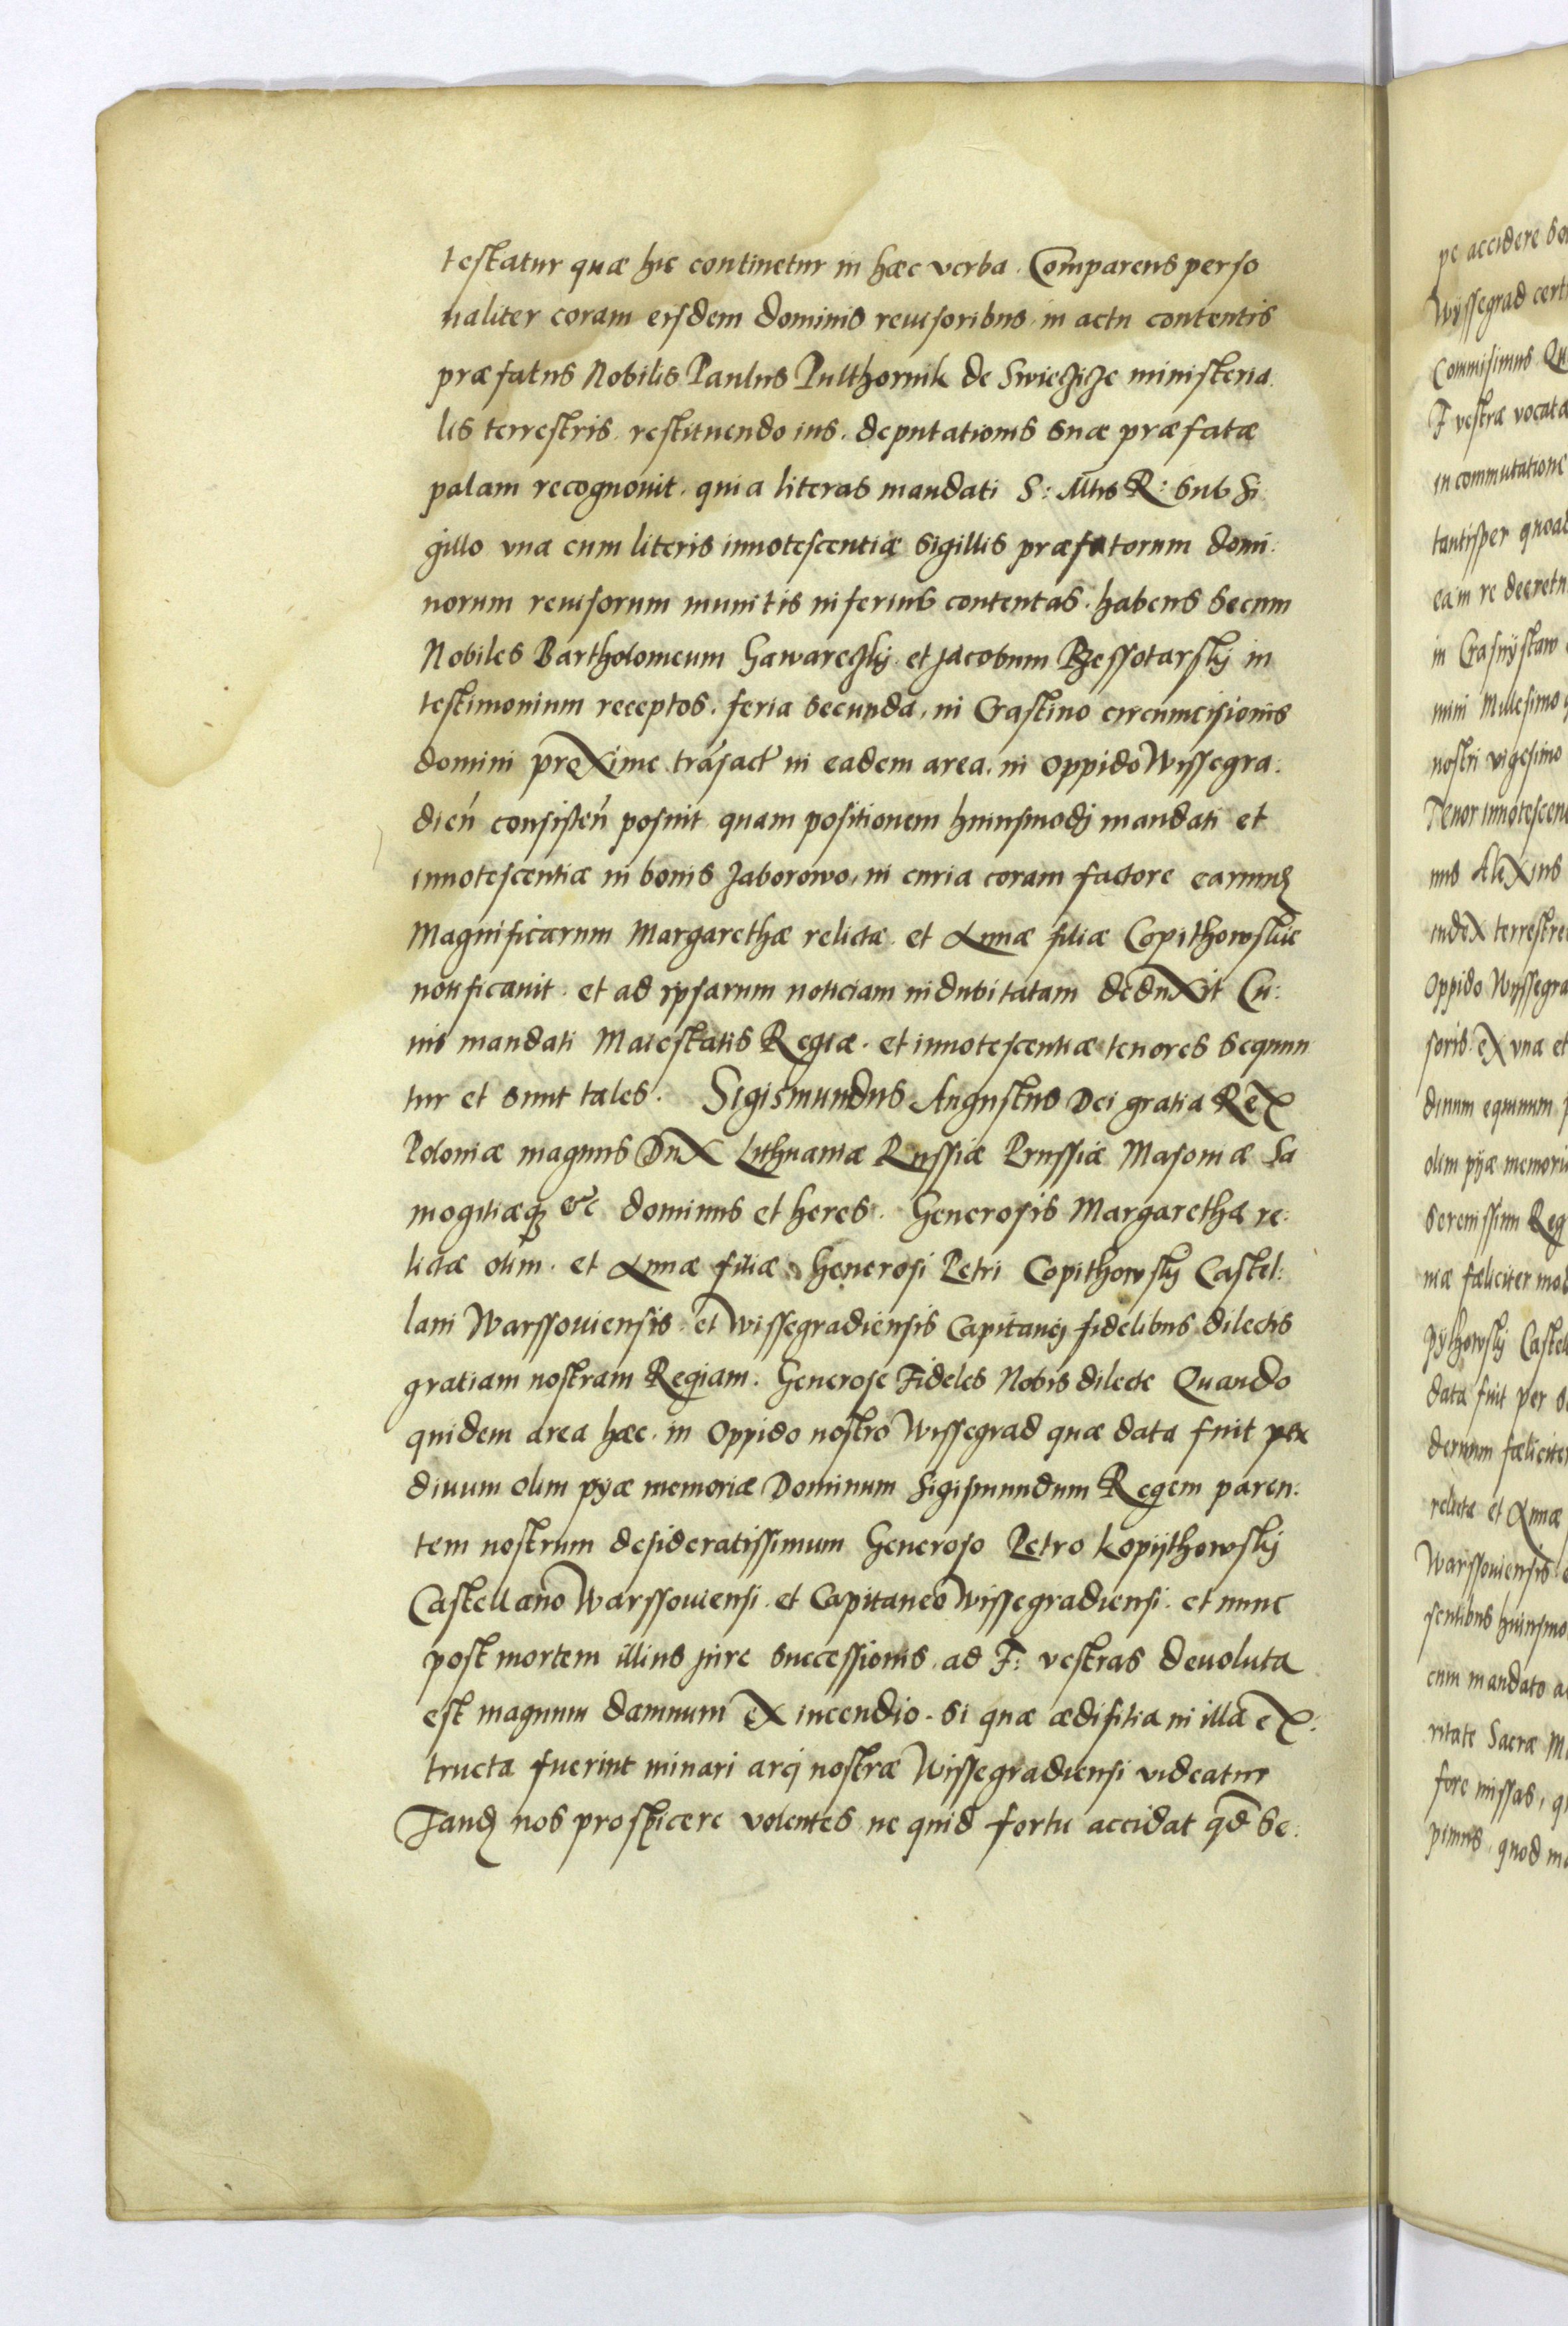 testatur quæ hic continetur in hæc verba. Comparens perso
naliter coram eisdem dominis reuisoribus in actu contentis
præfatus Nobilis Paulus Pulthornik de Swieczicze ministeria
lis terrestris restituendo ius deputationis suæ præfatæ
palam recognouit, quia literas mandati S: Mtis R: sub Si
gillo vna cum literis innotescentiæ sigillis præfatorum domi:
norum reuisorum munitis inferius contentas. habens secum
Nobiles Bartholomeum Gawareczky et Jacobum Rzessotarsky in
testimonium receptos. feria secunda, in Crastino circumcisionis
domini proxime transact in eadem area, in oppido Wyssegra:
dien consisten posuit quam positionem huiusmodj mandati et
innotescentiæ in bonis Zaborowo, in curia coram factore earundem
Magnificarum Margarethæ relictæ et Annæ filiæ Copithowskie
notificauit et ad ipsarum noticiam indubitatam deduxit Cu:
ius mandati Maiestatis Regiæ et innotescentiæ tenores sequun
tur et sunt tales. Sigismundus Augustus Dei gratia Rex
Poloniæ magnus Dux Lithuaniæ Russiæ Prussiæ Masouiæ Sa
mogitiæq &c dominus et heres. Generosis Margarethæ re:
lictæ olim et Annæ filiæ Generosi Petri Copithowsky Castel:
lani Warssouiensis et Wissegradiensis Capitanej fidelibus dilectis
gratiam nostram Regiam. Generose Fideles Nobis dilecte Quando
quidem area hæc in Oppido nostro Wissegrad quæ data fuit per
diuum olim pyæ memoriæ Dominum Sigismundum Regem paren:
tem nostrum desideratissimum Generoso Petro Kopythowsky
Castellano Warssouiensi et Capitaneo Wissegradiensi et nunc
post mortem illius jure successionis ad F: vestras deuoluta
est magnum damnum ex incendio si quæ ædifitia in illa ex:
tructa fuerint minari arcj nostræ Wissegradiensi videatur
Tandem nos prospicere volentes ne quid fortu accidat qd Se:
pe accidere
Wyssegrad cert
Commisimus Qu
F vestræ vocata
in commutatione
tantisper quoad
eam re decretu
in Crasnystaw
mini Millesimo
nostri vigesimo
Tenor innotescen
nus Alexius
iudex terrestre
Oppido Wyssegra
soris ex vna et
dinum equinum
olim pyæ memori
Serenissim Reg
niæ fæliciter mod
pythowsky Castel
data fuit per
dernum fæliciter
relictæ et Annæ
Warssouiensis
sentibus huiusmo
cum mandato a
ritate Sacræ M
fore missas, q
pimus, quod m